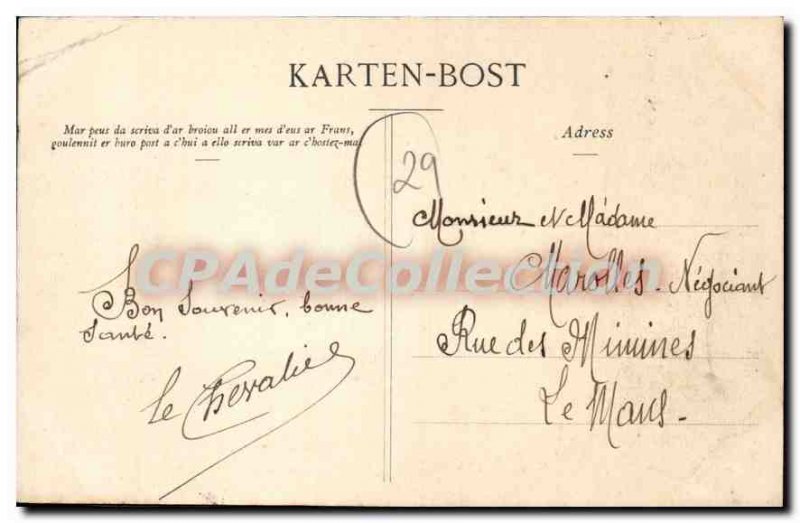 KARTEN-BOST
Mar peus da scriva d'ar broiou all er mes d'eus ar Frans,
goulennit er buro post a c'hui a ello scriva var ar c'hostez-ma
Adress
29
Monsieur et Madame
Marolles. Négociant
Rue des Minimes
Le Mans-
Bon souvenir, bonne
santé.
Le Chevalier
CPAdeCollection